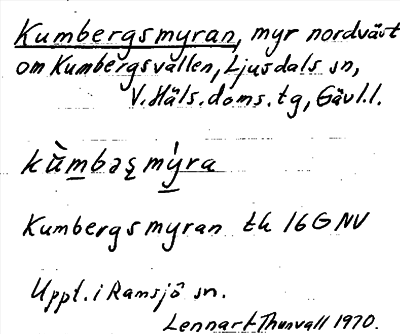 Kumbergsmyran, myr nordväst
om Kumbergsvallen, Ljusdals sn,
V. Häls. doms. tg, Gävl.l.
kùmbəʂmýra
Kumbergsmyran tk 16G NV
Uppt. i Ramsjö sn.
Lennart Thunvall 1970.